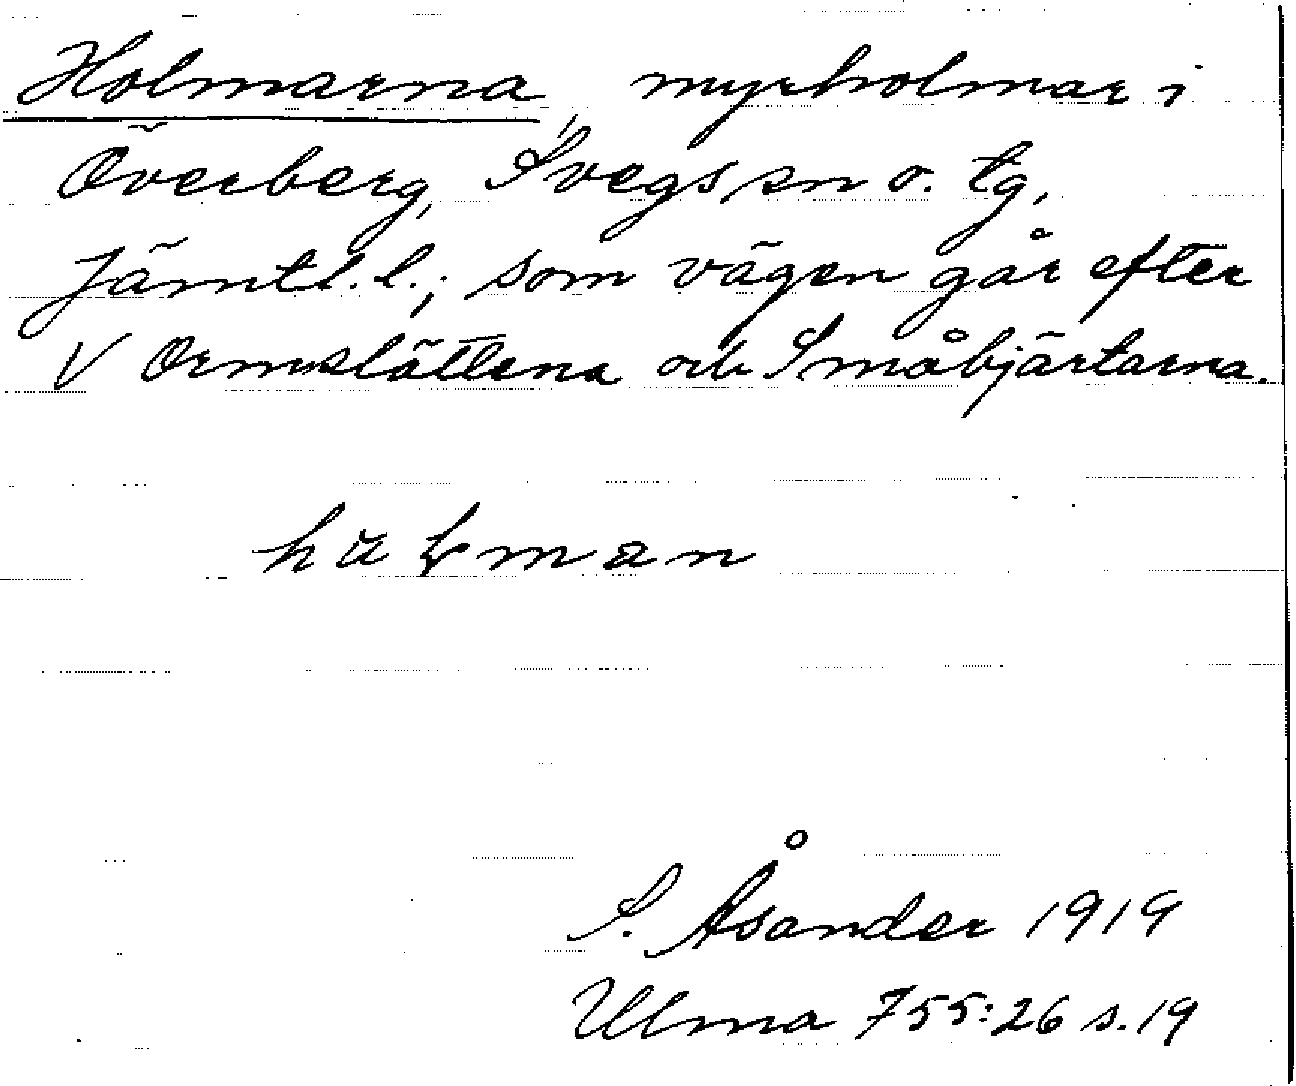 Holmarna, myrholmar i
Överberg, Svegs sn o. tg,
Jämtl. l.; som vägen går efter
V Ormslåttena och Småbjärtarna.
S. Åsander 1919
Ulma 755:26 s. 19